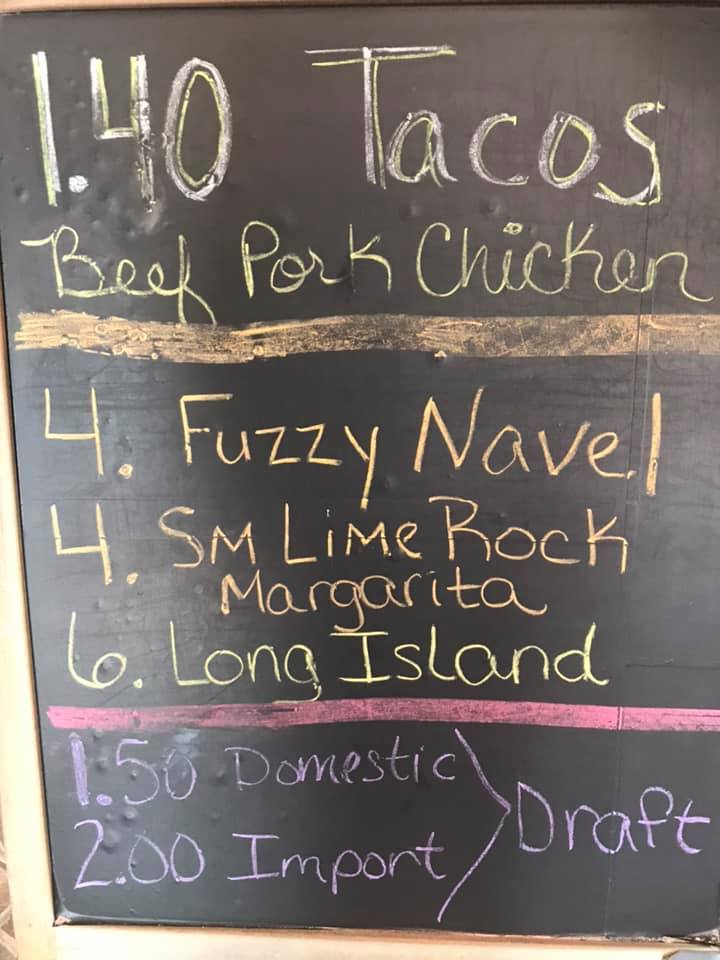 1.40 Tacos
Beef Pork Chicken
4. Fuzzy Navel
4. SM Lime Rock
Margarita
6. Long Island
1.50 Domestic
2.00 Import
Draft